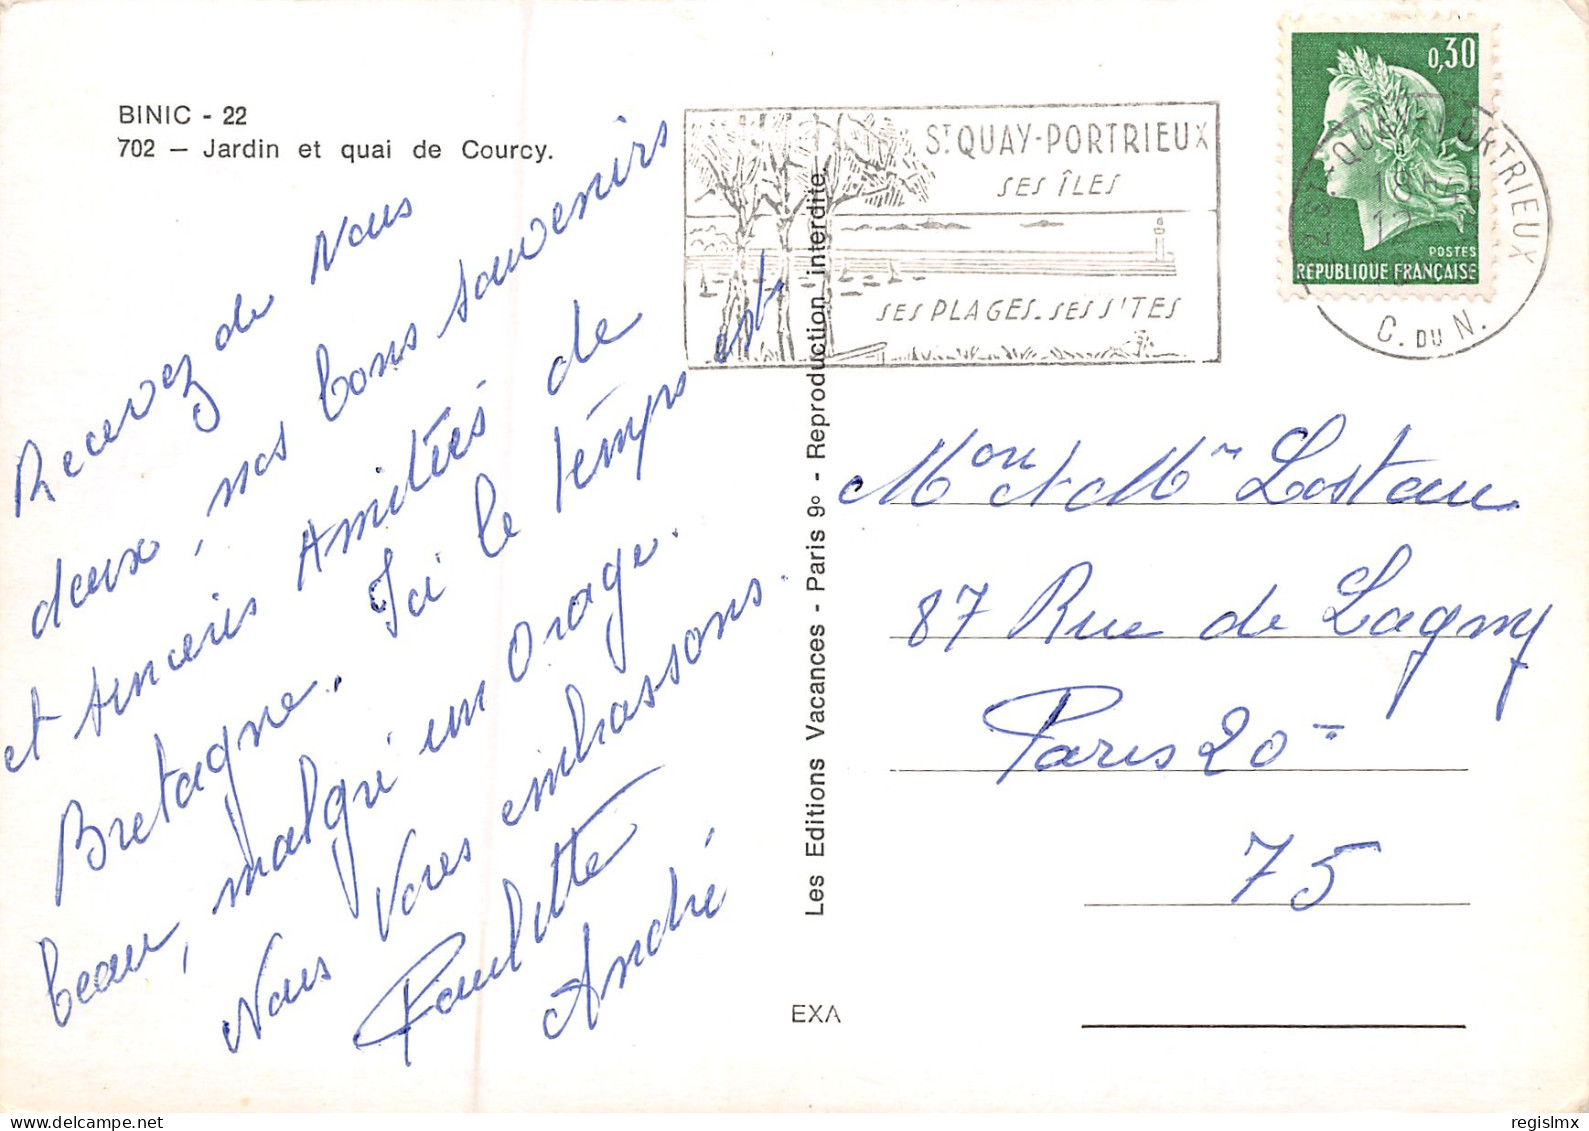 BINIC - 22
702 — Jardin et quai de Courcy.
Recevez de Nous
deux, nos bons souvenirs
et sincères Amitiés de
Bretagne. Ici le temps est
beau, malgré un orage.
Nous Vous embrassons.
Paulette
André
Les Editions Vacances - Paris 9º - Reproduction interdite
EXA
ST QUAY-PORTRIEUX
SES ÎLES
SES PLAGES. SES SITES
0,30
POSTES
REPUBLIQUE FRANÇAISE
22 ST-QUAY-PORTRIEUX
C. DU N.
Mon et Mm Lostau
87 Rue de Lagny
Paris 20
75
regislmx